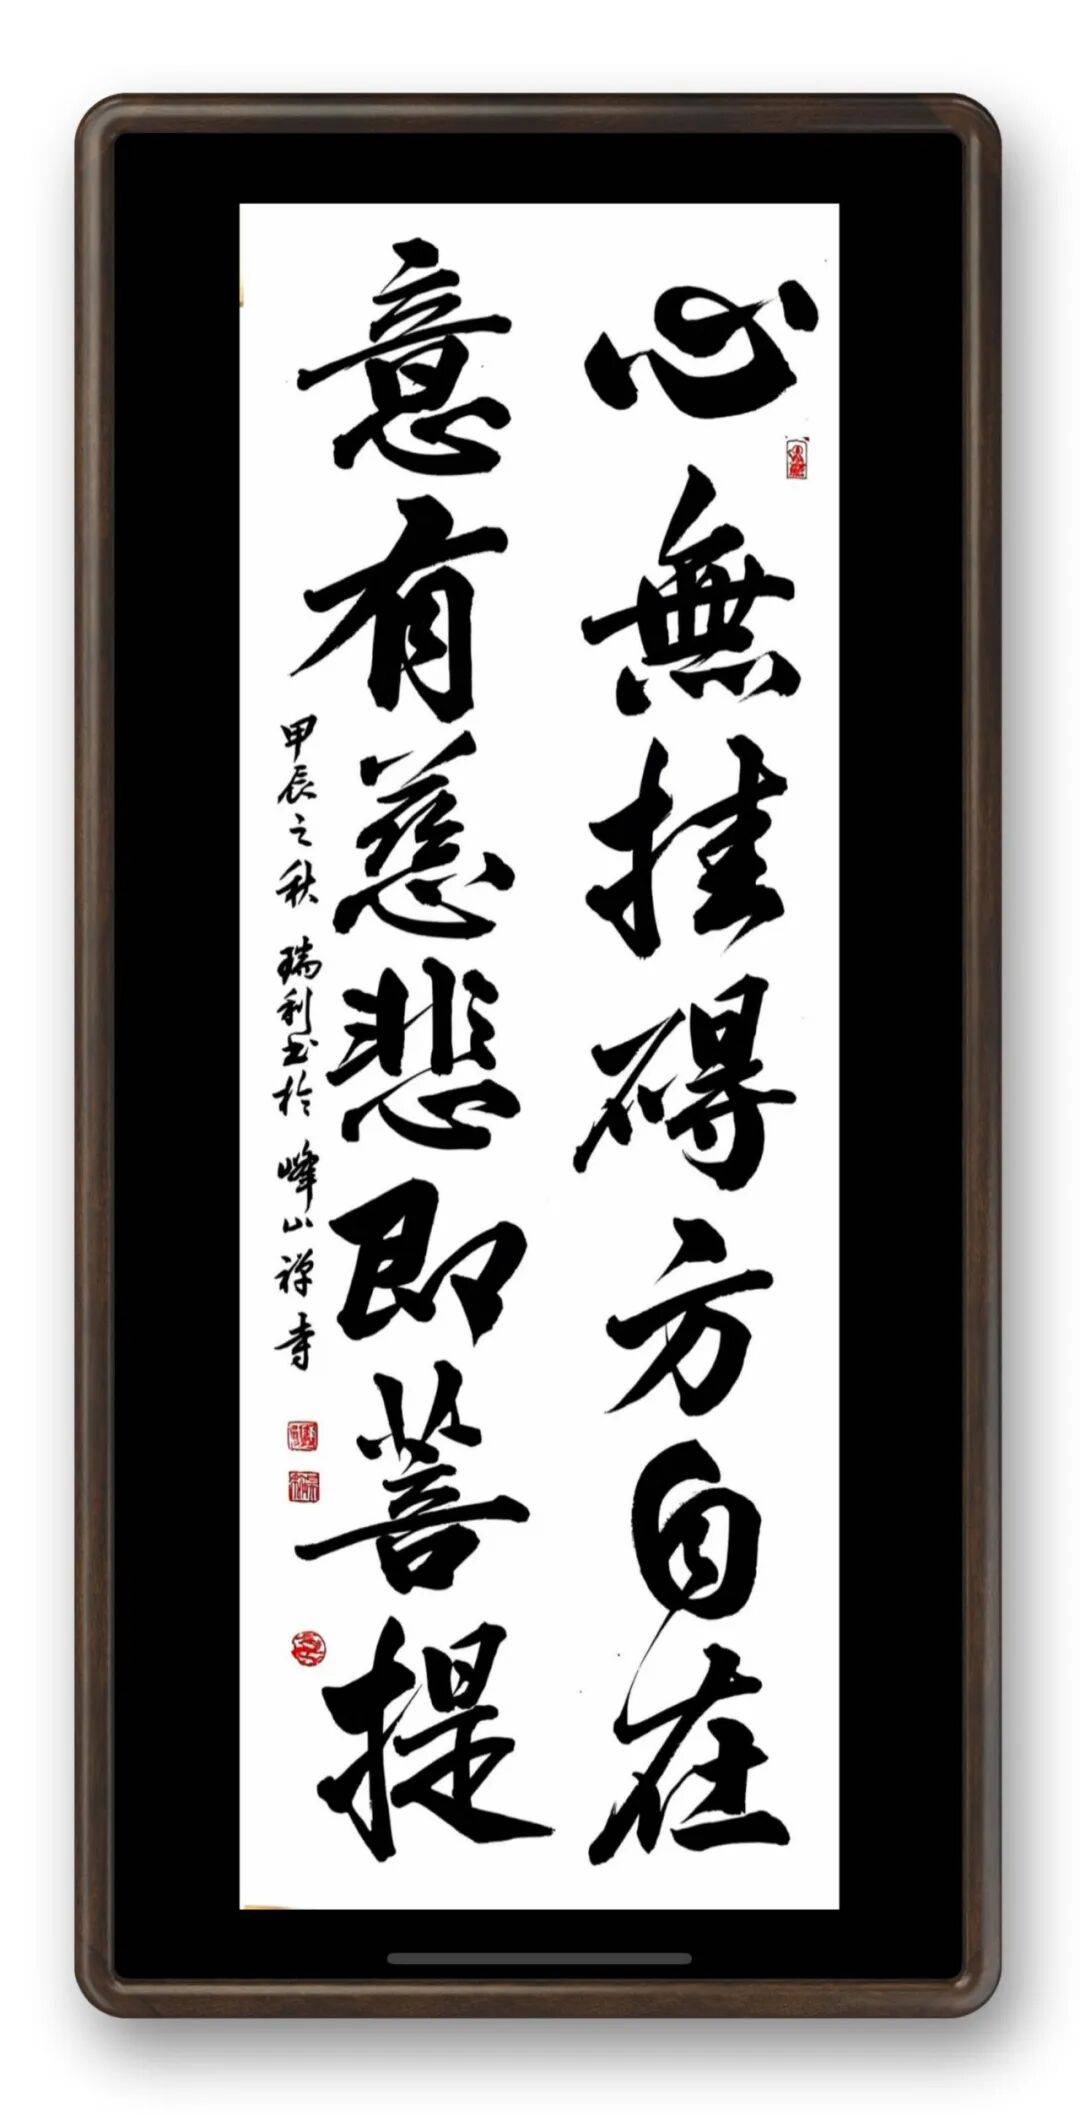 心無挂碍方自在
意有慈悲即菩提
甲辰之秋 瑞利书於 峰山禅寺